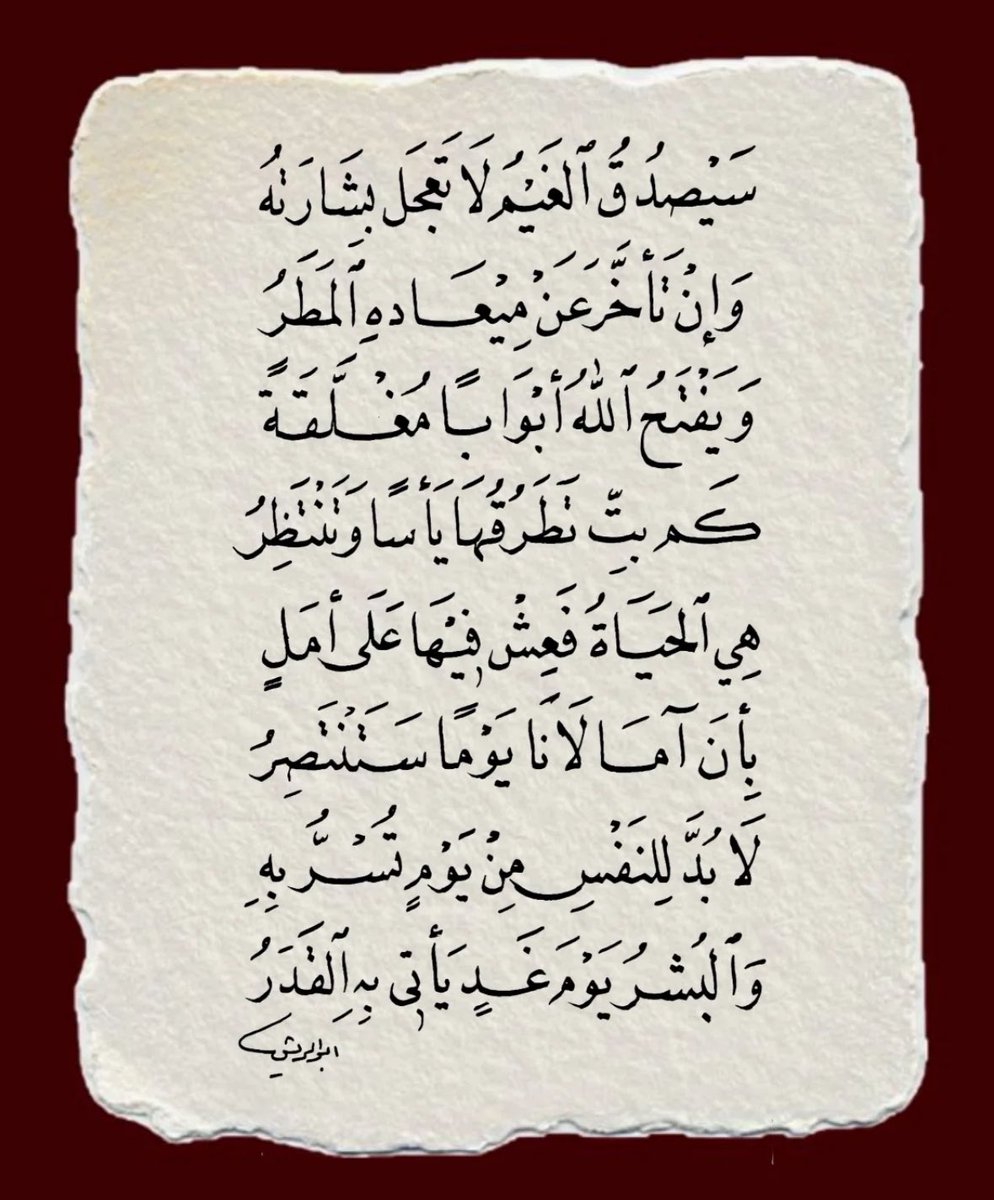 سَيَصدُقُ ٱلغَيْمُ لَا تَعجَل بِشَارَتهُ
وَإنْ تَأخَّرَ عَنْ مِيْعَادهِ ٱلمَطَرُ
وَيَفْتَحُ ٱللّٰهُ أبْوَابًا مُغْلَّقَةً
كَم بتِّ تَطَرُقُهَا يَأسًا وَتَنْتَظِرُ
هِي ٱلحَيَاةُ فَعِشْ فِيْهَا عَلَى أمَلٍ
بِأنَ آمَالَانَا يَوْمًا سَتَنْتَصِرُ
لَا بُدَّ لِلنَفْسِ مِنْ يَوْمٍ تُسْرُّ بِهِ
وَٱلبُشرُ يَوْمَ غَدٍ يَأتى بِهِ ٱلقَدَرُ
ابوالريش